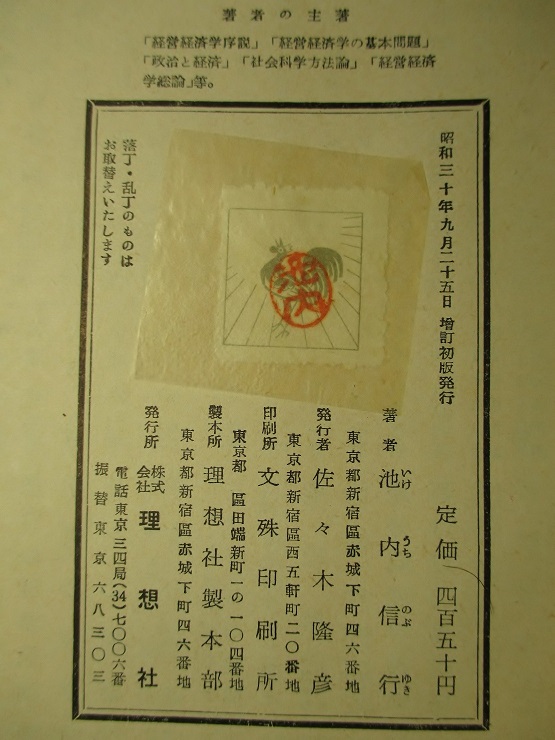 著者の主著
「経営経済学序説」「経営経済学の基本問題」
「政治と経済」「社会科学方法論」「経営経済
学総論」等。
昭和三十年九月二十五日 増訂初版発行
定価 四百五十円
著者 池内信行
いけ うち のぶ ゆき
東京都新宿區赤城下町四六番地
発行者 佐々木隆彦
東京都新宿區西五軒町二〇番地
印刷所 文殊印刷所
東京都 區田端新町一の一〇四番地
製本所 理想社製本部
東京都新宿區赤城下町四六番地
発行所 株式会社 理想社
電話東京三四局(34)七〇〇六番
振替東京六八三〇三
落丁・乱丁のものは
お取替えいたします
池内